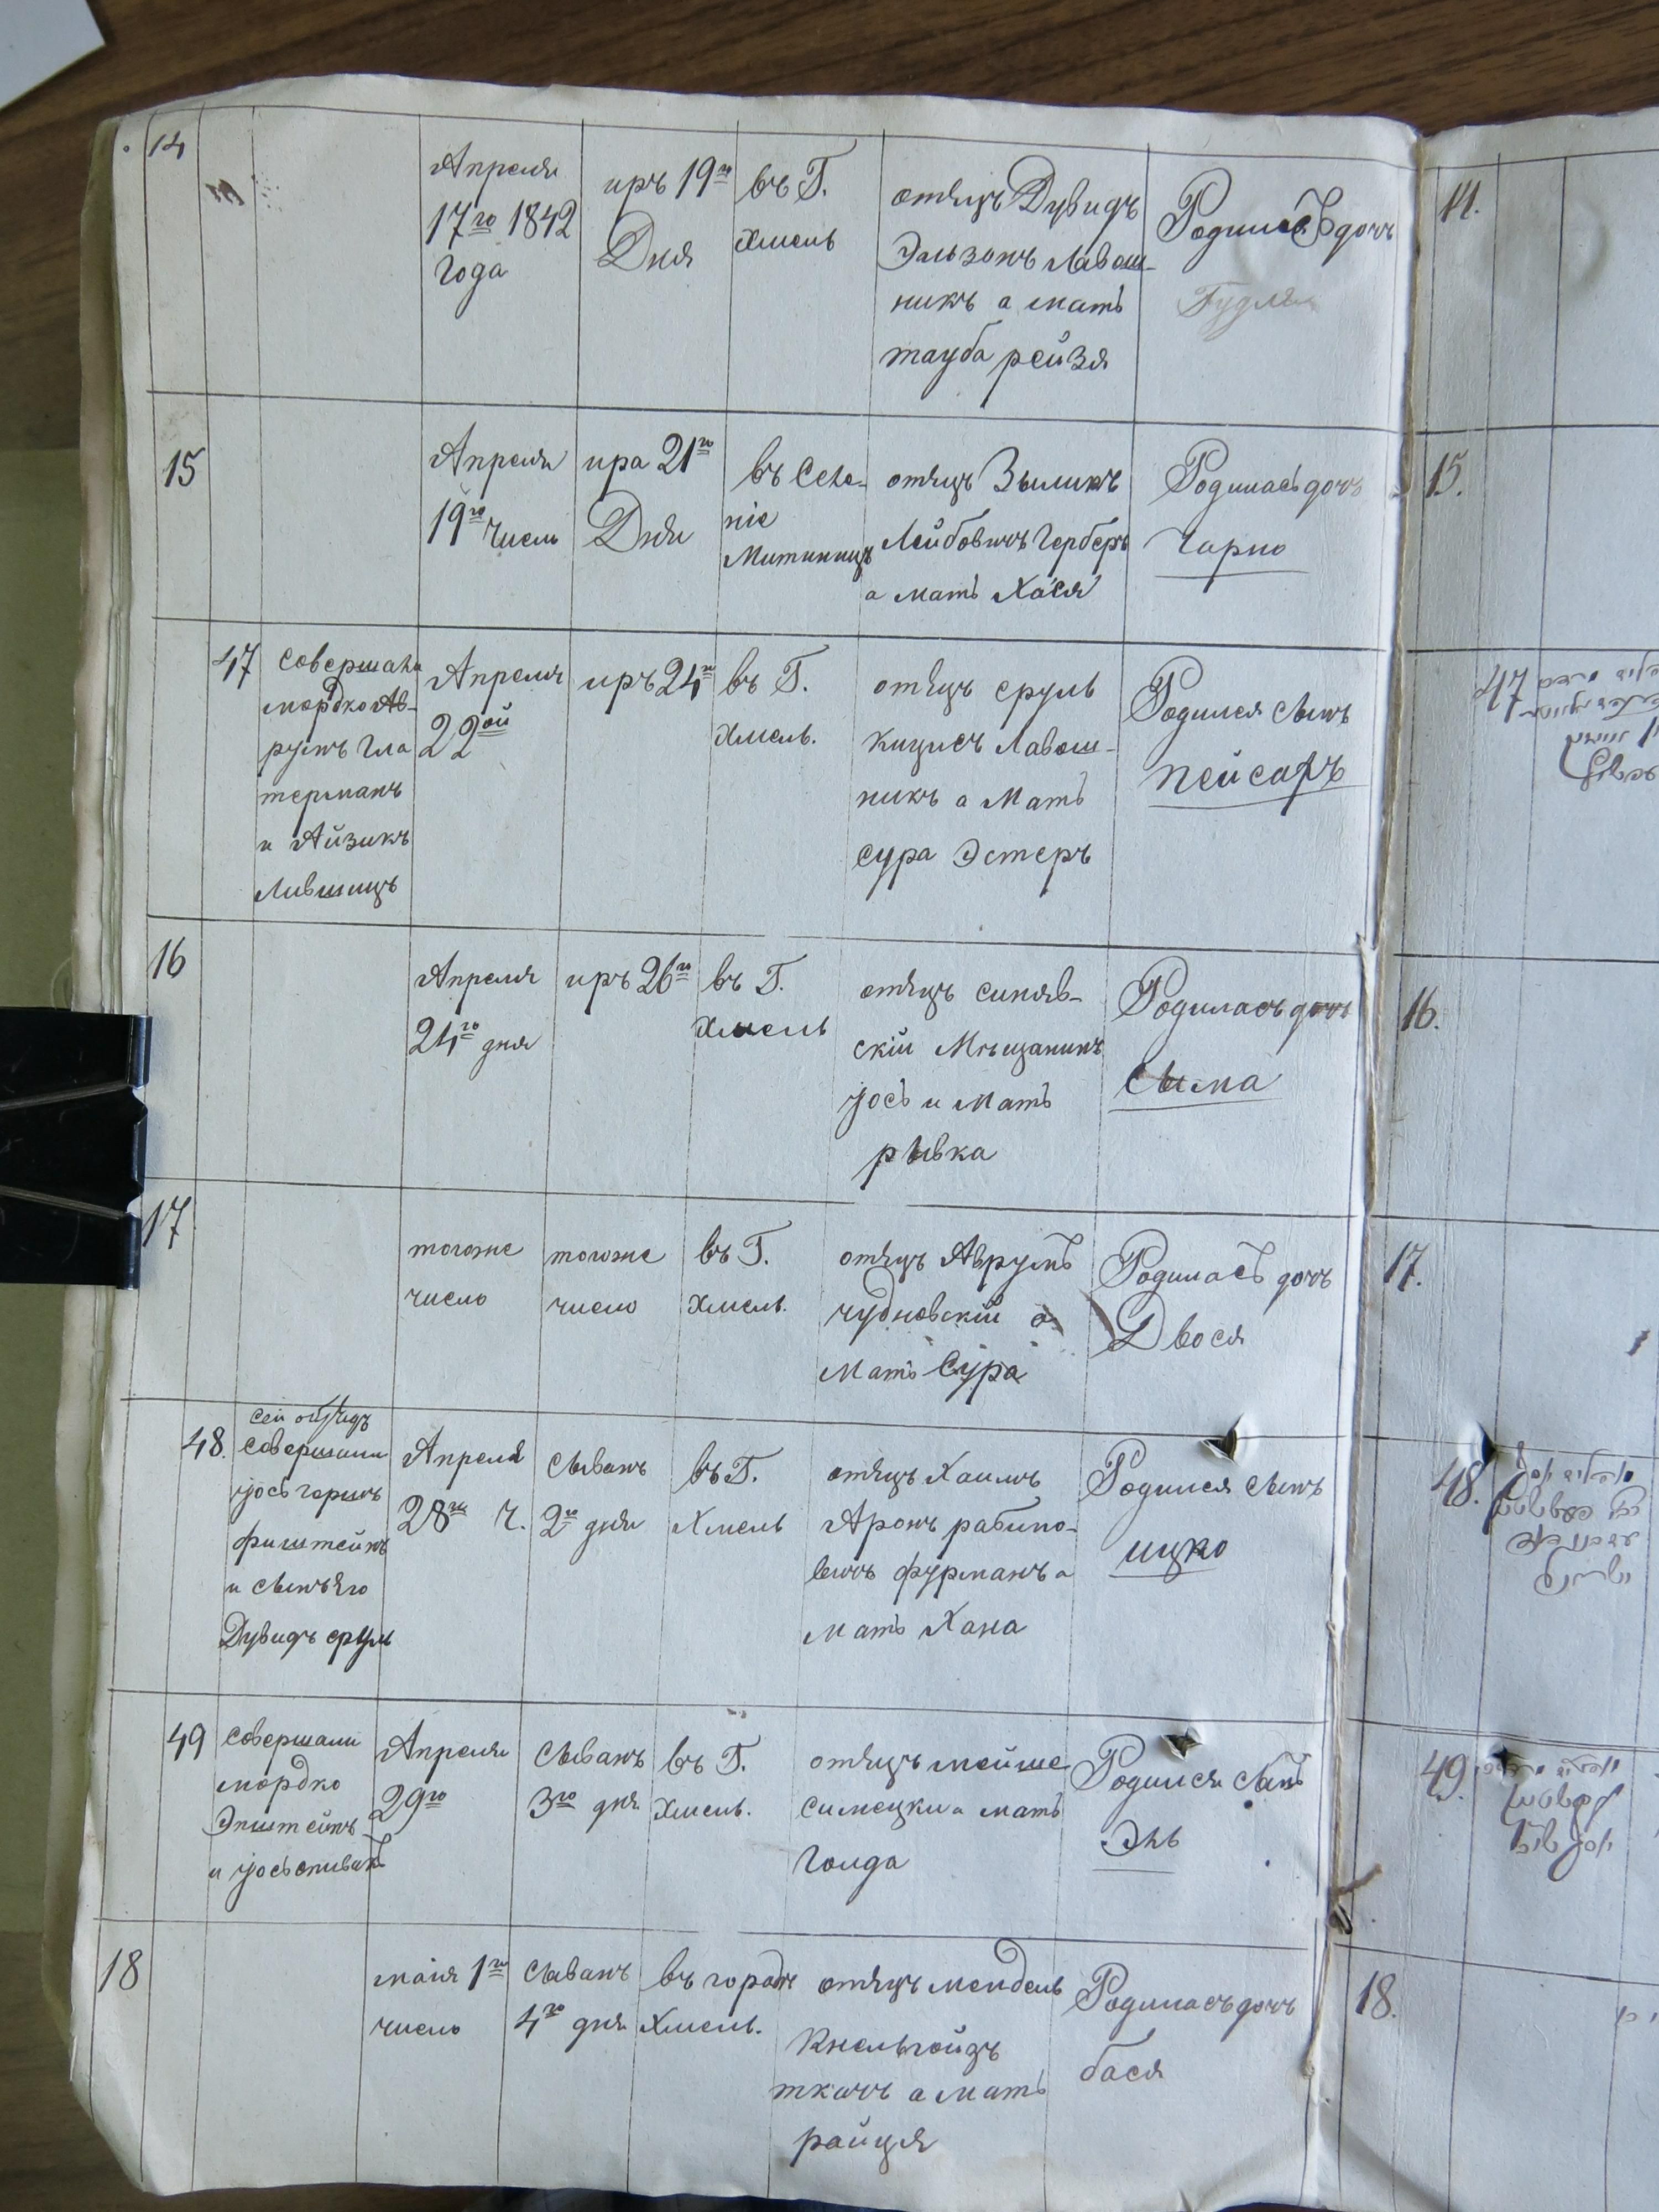 14
Апреля
17го 1842
года
иръ 19го
Дня
въ Г.
Хмель
отъцъ Дувидъ
Эльзонъ Лавош-
никъ а мать
тауба рейзя
Родилась дочь
Гудля
14.
15
Апреля
19го Число
ира 21го
Дня
въ Селе-
ніе
Митинцъ
отъцъ Зыликъ
Лейбовичъ Герберъ
а мать Хася
Родилась дочь
Чарно
15.
47
Совершали
мордко Ав-
румъ Гла
терманъ
и Айзикъ
Лившицъ
Апреля
22ой
иръ 24го
въ Г.
Хмель.
отъцъ сруль
кицисъ Лавош-
никъ а Мать
сура Эстеръ
Родился сынъ
пейсахъ
47
16
Апреля
24го дня
иръ 26го
въ Г.
Хмель
отъцъ синяв-
скій Мѣщанинъ
іось и Мать
рывка
Родилась дочь
Сыма
16.
17
тогоже
число
тогоже
число
въ Г.
Хмель.
отъцъ Аврумъ
чудновскій а
Мать Сура
Родилась дочь
Двося
17.
48.
сей обрядъ
Совершали
іось горинъ
фиштейнъ
и сынъ его
Дувидъ сруль
Апреля
28го Ч.
Сыванъ
2го дня
въ Г.
Хмель
отъцъ Хаимъ
Аронъ рабино-
вичъ фурманъ а
мать Хана
Родился сынъ
ицко
48.
49
Совершали
мордко
Эпштейнъ
и іось спивакъ
Апреля
29го
Сыванъ
3го дня
въ Г.
Хмель.
отъцъ мейше
симецки а мать
Голда
Родился сынъ
Эль
49.
18
маія 1го
число
Сыванъ
4го дня
въ городѣ
Хмель.
отъцъ мендель
Кнельгойзъ
ткачъ а мать
райця
Родилась дочь
бася
18.